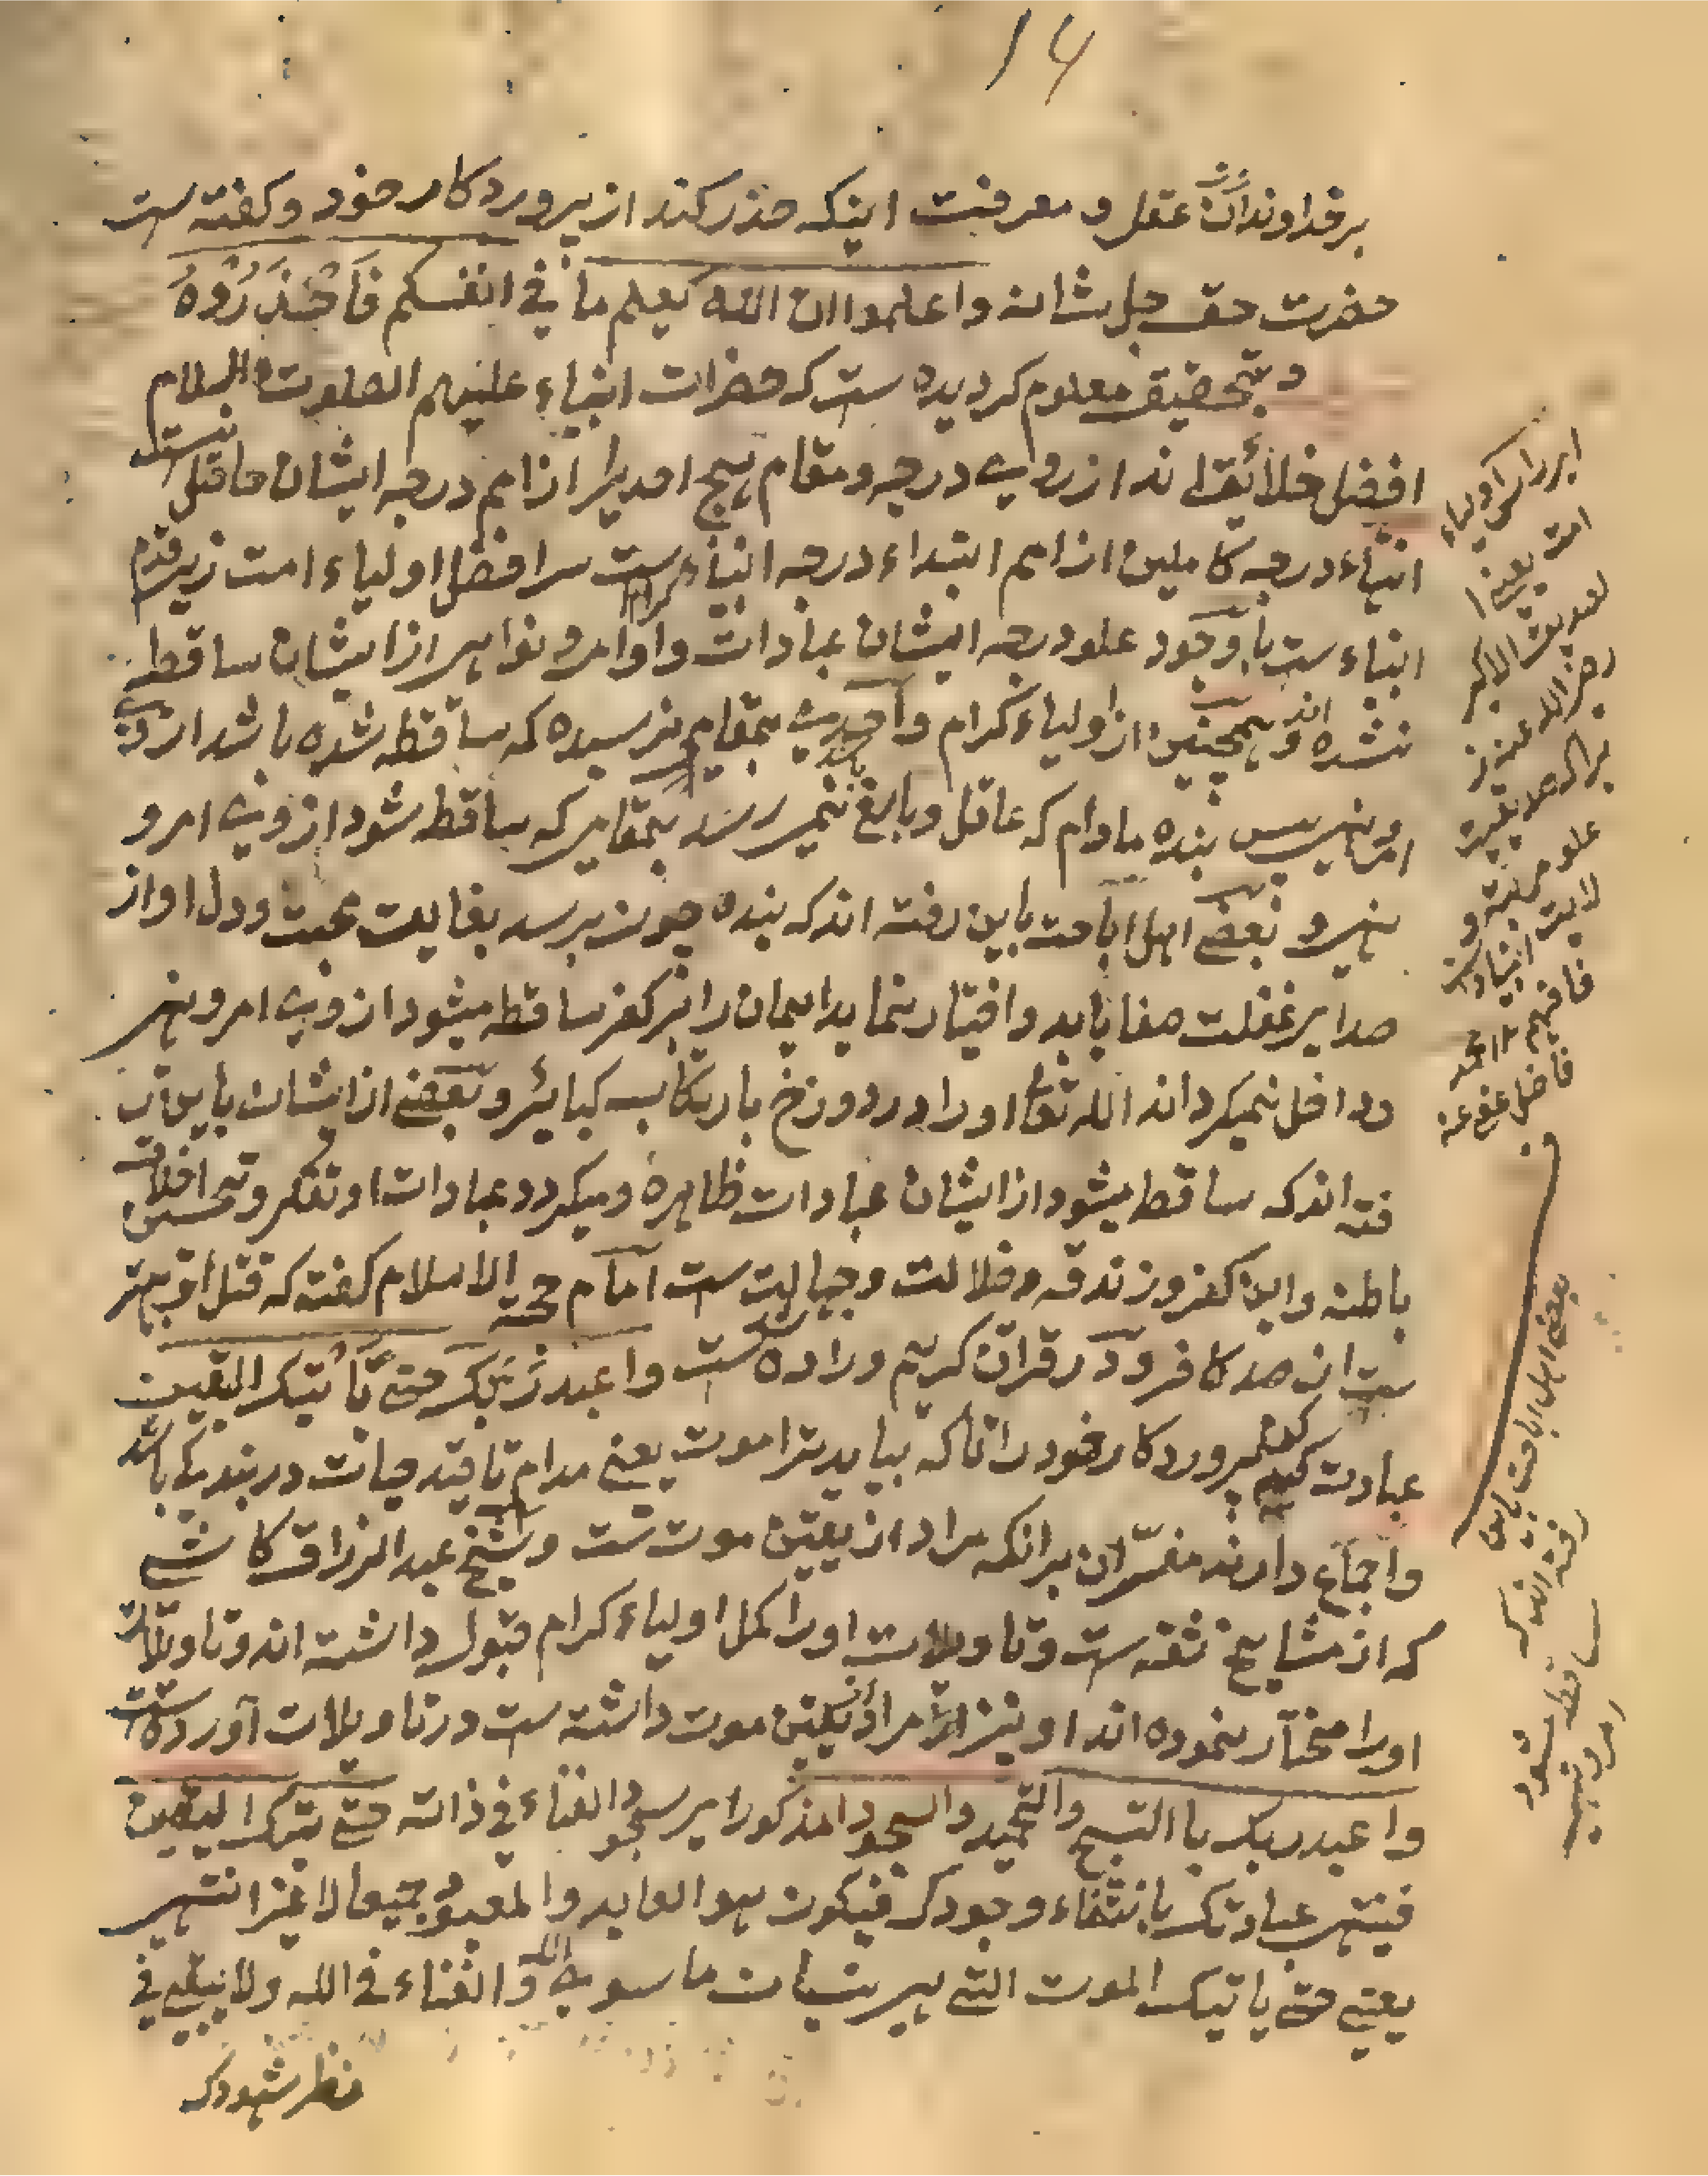 ۱۴
برخداوندان عقل و معرفت اینکه حذر کند از پروردکار خود و کفته ست
حضرت حق جل شانه واعلموا ان الله یعلم ما فی انفسکم فَاحْذَرُوْهُ
و بتحقیق معلوم کردیده ست که حضرات انبیاء علیهم الصلوت والسلام
افضل خلائق اند از روی درجه و مقام هیچ احدیرا از امم درجه ایشان حاصل نیست
انتهاء درجه کاملین از امم ابتداء درجه انبیاء کرام ست سر افضل اولیاء امت زیر قدم
انبیاء ست با وجود علو درجه ایشان عبادات و اوامر و نواهی از ایشان ساقط
نشده اند و همچنین از اولیاء کرام واحدی بمقامی نرسیده که ساقط شده باشد از وی
امر و نهی پس بنده مادام که عاقل و بالغ نمیرسد بمقامی که ساقط شود از وی امر و
نهی و بعضی اهل اباحت باین رفته اند که بنده چون برسد بغایت محبت و دل او از
صدایر غفلت صفا یابد و اختیار نماید ایمان را بر کفر ساقط میشود از وی امر و نهی
و داخل نمیکرداند الله تعا او را در دوزخ بارتکاب کبائر و بعضی از ایشان باین ر
فته اند که ساقط میشود از ایشان عبادات ظاهره و میکردد عبادات او تفکر و تحسین اخلاق
باطنه و این کفر و زندقه و ضلالت و جهالت ست امام حجة الاسلام کفته که قتل او بهتر
ست از صد کافر و در قران کریم وارد شده ست واعبد رَبَّکَ حتی یَأتیک الیقین
عبادت کن پروردکار خود را تا که بیاید ترا موت یعنی مدام تا قید حیات در بندکی باش
و اجماع دارند مفسّران برانکه مراد از یقین موت ست و شیخ عبد الرزاق کاشی
که از مشایخ ثقه ست و تاویلات او را کمل اولیاء کرام قبول داشته اند و تاویلات
او را مختار نموده اند او نیز از مراد یقین موت داشته ست در تاویلات آورده ست
واعبد ربک با التسبیح والتحمید والسجود المذکورا یر سجود الفناء فی ذاته حتی یتیک الیقین
فینتهی عبادتک بانتفاء وجودک فیکون هو العابد والمعبود جمیعا لا غیر انتهی
یعنی حتی یاتیک الموت التی هی نسیان ما سوی الله والفناء فی الله ولا یبقی فی
نظر شهودک
امت یعنی
رضی الله عنه
علو مرتبه و
فافهم
فاضل عفی عنه
بعضی اهل اباحت باین
رفته اند که
ساقط میشود
امر و نهی